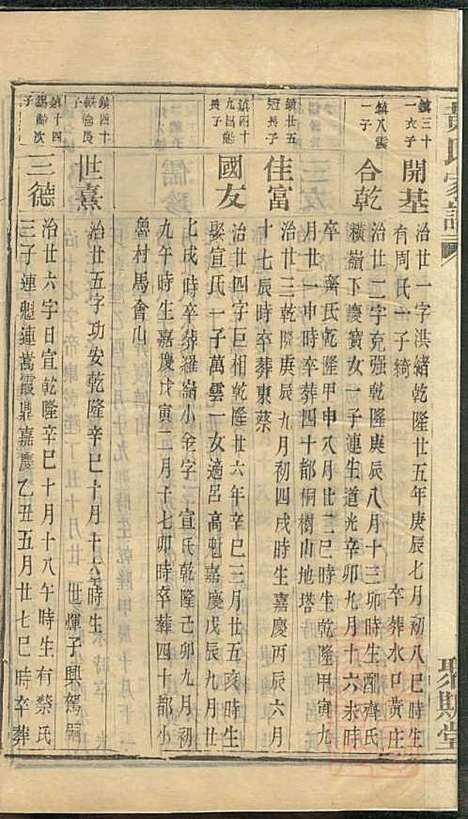 黃氏家譜
聚斯堂
鎮三十
一六子
開基
治廿一字洪緒乾隆廿五年庚辰七月初八巳時生
卒葬水口黃庄
有周氏一子綺
鎮八震
一子
合乾
治廿二字克强乾隆庚辰八月十三卯時生配齊氏
橫嶺下慶寶女一子連生道光辛卯九月十六未時
卒 齊氏乾隆甲申八月廿二巳時生乾隆甲寅九
月廿一申時卒葬四十都桐樹山地塔
鎮廿五
冠長子
佳富
治廿三乾隆庚辰九月初四戌時生嘉慶丙辰六月
十七辰時卒葬東蔡
鎮四十
九昌魁
長子
國友
治廿四字巨相乾隆廿六年辛巳三月廿五亥時生
娶宣氏一子萬雲一女適呂高魁嘉慶戊辰九月
七戌時卒葬羅嶺小金字 宣氏乾隆己卯九月初
九午時生嘉慶戊寅二月子七卯時卒葬四十都小
魯村馬會山
鎮四十
子
世熹
治廿五字功安乾隆辛巳十月十六時生
世燀子興駕嗣
鎮十四
錫齡次
子
三德
治廿六字日宣乾隆辛巳十月十八午時生有蔡氏
三子連魁連萬霞鼎嘉慶乙丑五月廿七巳時卒葬